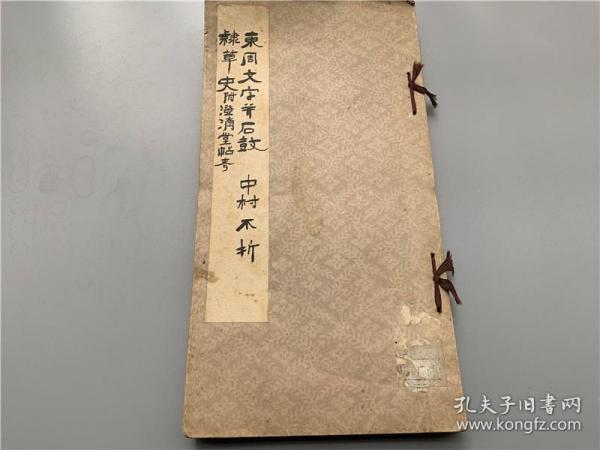 東周文字并石鼓 中村不折
隷草史附澄清堂帖考
孔夫子旧書网
www.kongfz.com